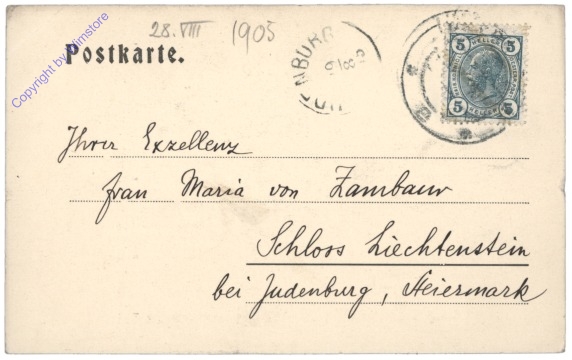 28. VIII 1905
Postkarte.
5 HELLER 5
5 HELLER 5
Ihrer Exzellenz
frau Maria von Zambaur
Schloss Liechtenstein
bei Judenburg, Steiermark
Copyright by Wimstore